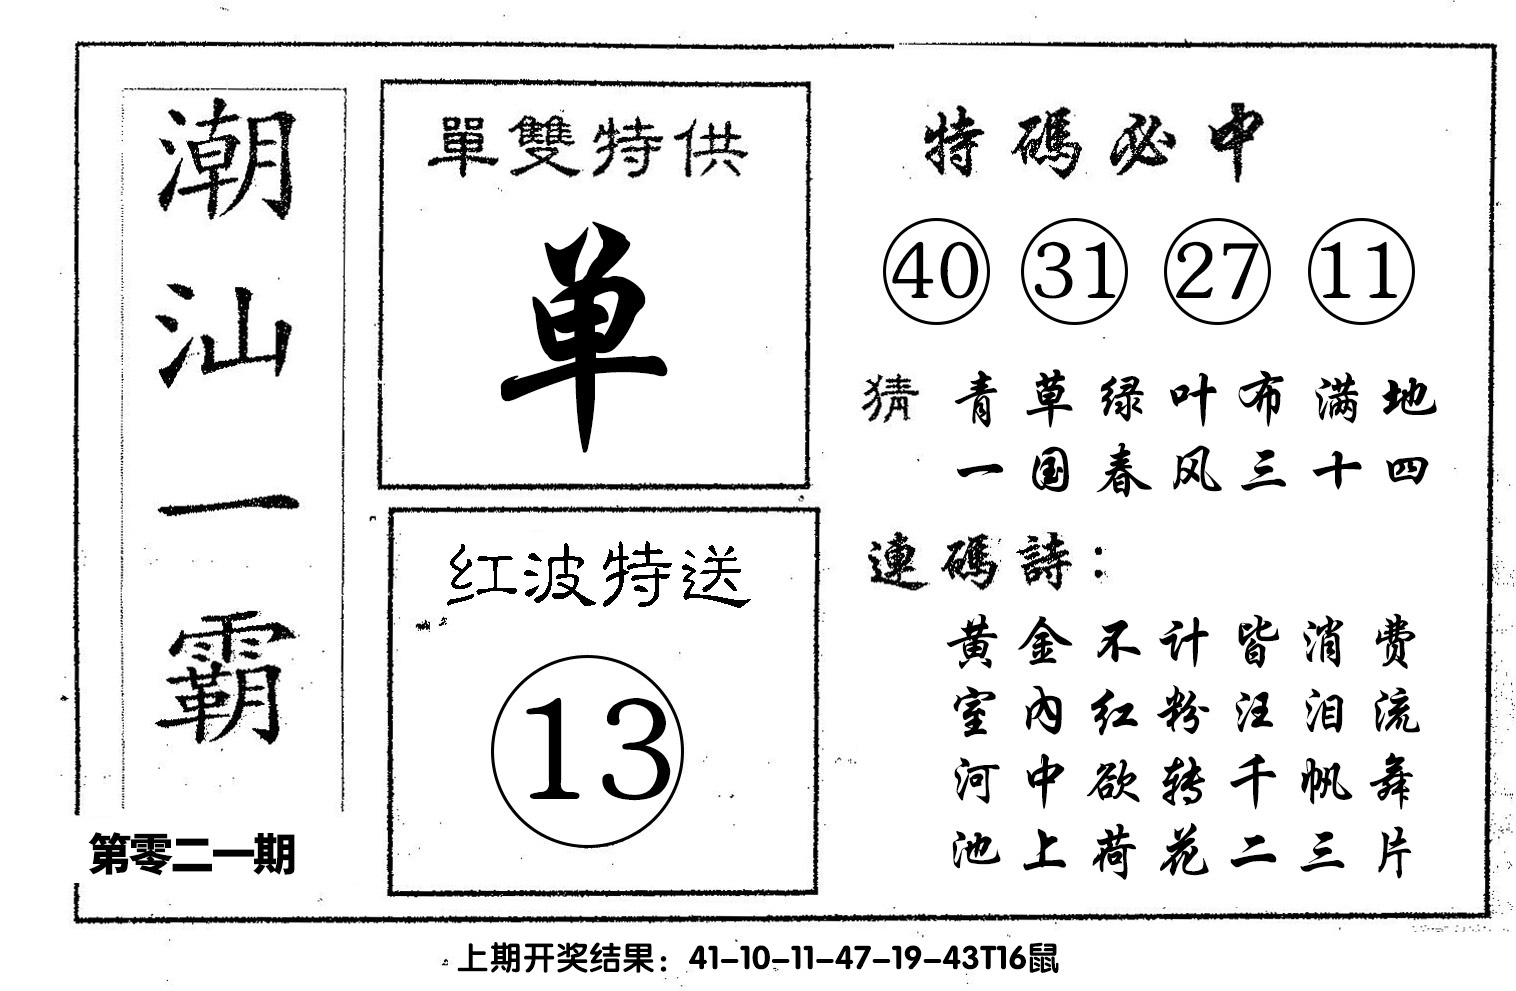 潮汕一霸
第零二一期
單雙特供
单
红波特送
13
特碼必中
40 31 27 11
猜 青草绿叶布满地
一国春风三十四
連碼詩：
黄金不计皆消费
室内红粉汪泪流
河中欲转千帆舞
池上荷花二三片
上期开奖结果：41-10-11-47-19-43T16鼠